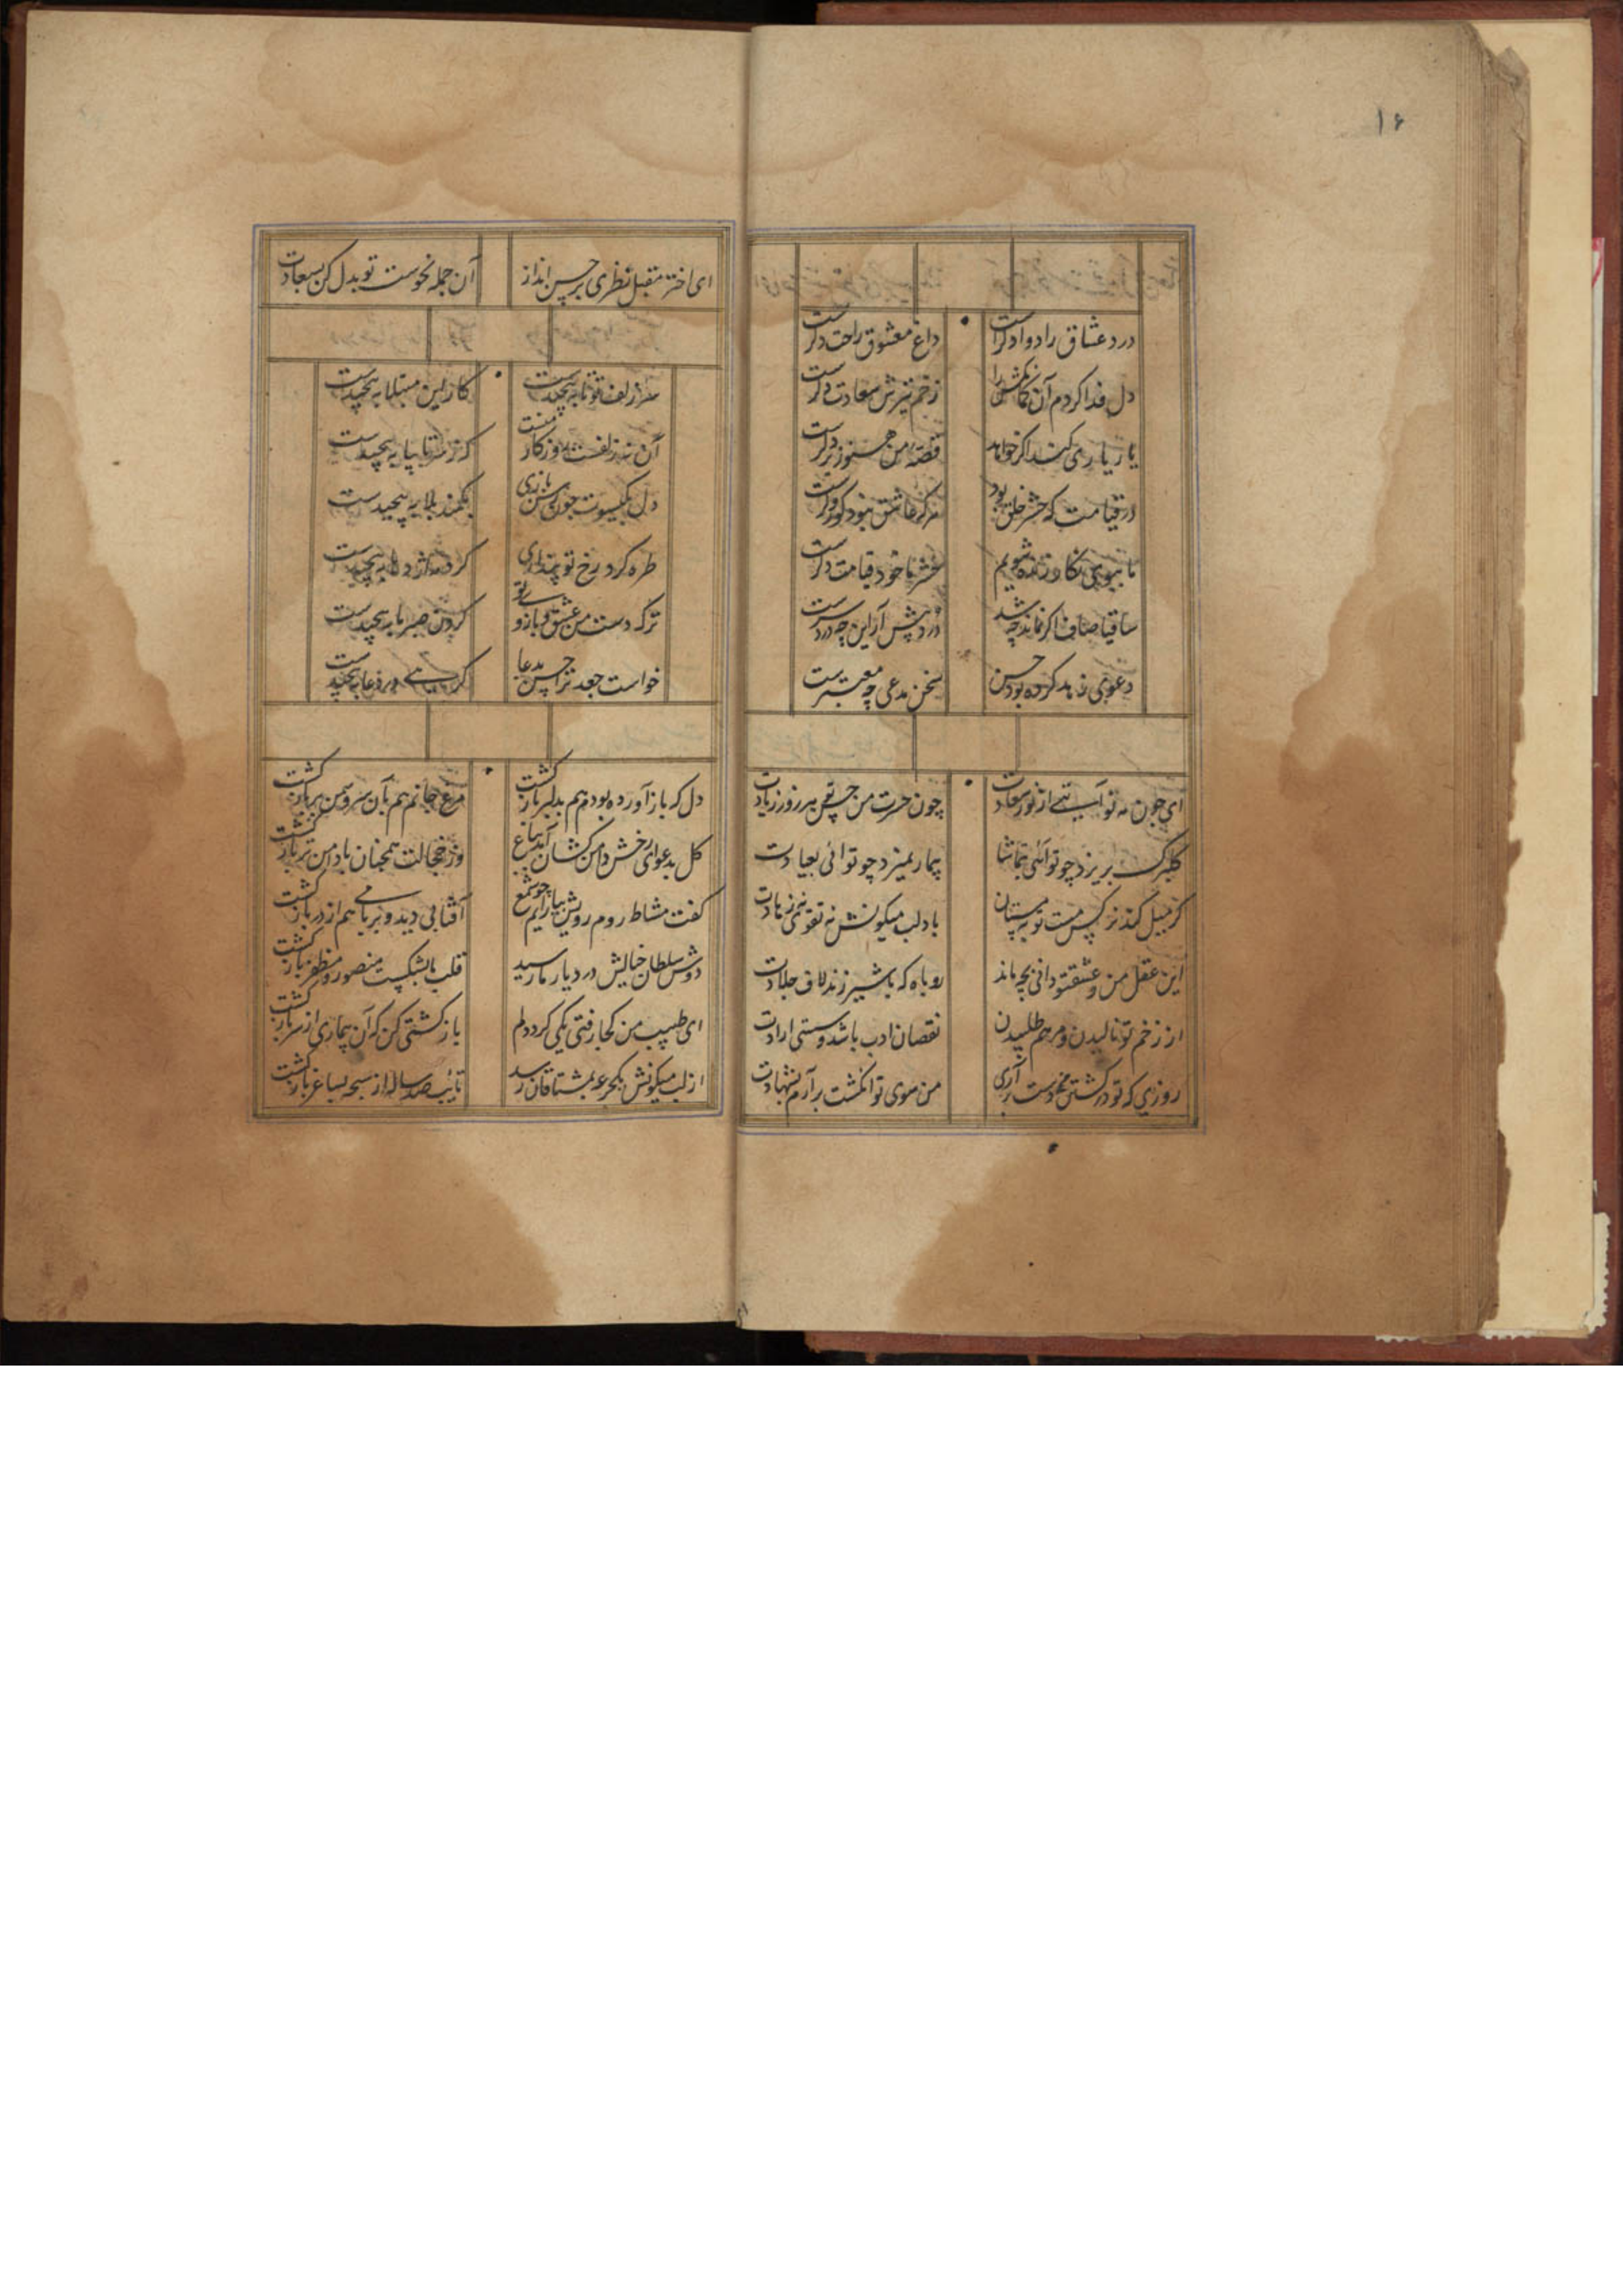 ۱۶
درد عشاق را دوا دکرست
داغ معشوق راحت دکرست
دل فدا کردم آن کمانکش را
زخم تیرش سعادت دکرست
یار یاری کند اکر خواهد
قصه من هنوز در کرست
در قیامت که حشر خلق بود
هر که عاشق نبود کور و کرست
ما ببوی نکار زنده شویم
حشر ما خود قیامت دکرست
ساقیا صاف اکر نماند چه شد
درد پیش آر این چه دردسرست
دعوی زاهد کرده بود حسن
سخن مدعی چه معتبرست
ای چون مه نو آیتی از نور سعادت
چون حسرت من حسن تو هر روز زیادت
کلبرک بریزد چو تو آئی بتماشا
بیمار نمیرد چو تو آئی بعیادت
کر میل کند نرکس مست تو بمستان
با دلب میکونش نه تقوی نه زهادت
این عقل من و عشق تو دانی بچه ماند
روباه که با شیر زند لاف جلادت
از زخم تو نالیدن و مرهم طلبیدن
نقصان ادب باشد و سستی ارادت
روزی که تو در کشتن من دست برآری
من سوی تو انکشت برآرم بشهادت
ای اختر مقبل نظری بر حسن انداز
آن جمله نحوست تو بدل کن بسعادت
سر زلف تو تا به پیچیدست
کار این مبتلا به پیچیدست
آن نه زلفست روزکار منست
کز سر تا بپا به پیچیدست
دل بکیسوت چون رسن بازی
بکمند بلا به پیچیدست
طره کرد رخ تو پنداری
کرد مه اژدها به پیچیدست
ترک دست من عشق و بازوی تو
کردن صبر ما به پیچیدست
خواست جعد ترا حسن بدعا
به پیچیدست
دل که باز آورده بودم هم بدلبر بازکشت
مرغ جانم هم بآن سرو سمن بر بازکشت
کل بدعوای رخش دامن کشان آمد بباغ
وز خجالت همچنان با دامن تر بازکشت
کفت مشاطه روم رویش بیارایم چو شمع
آفتابی دید و بر بامی هم از در بازکشت
دوش سلطان خیالش در دیار ما رسید
قلب ما بشکست منصور و مظفر بازکشت
ای طبیب من کجا رفتی یکی کرد دلم
باز کشتی کن که آن بیماری از سر بازکشت
از لب میکونش یکجرعه بمشتاقان رسید
تائب صد ساله از سبحه بساغر بازکشت